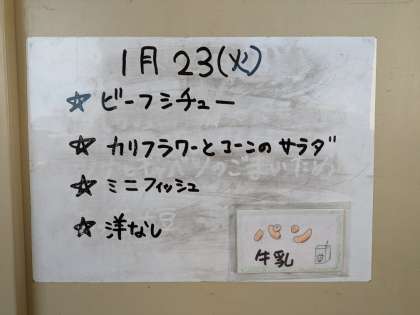 1月23(火)
☆ ビーフシチュー
☆ カリフラワーとコーンのサラダ
☆ ミニフィッシュ
☆ 洋なし
パン
牛乳